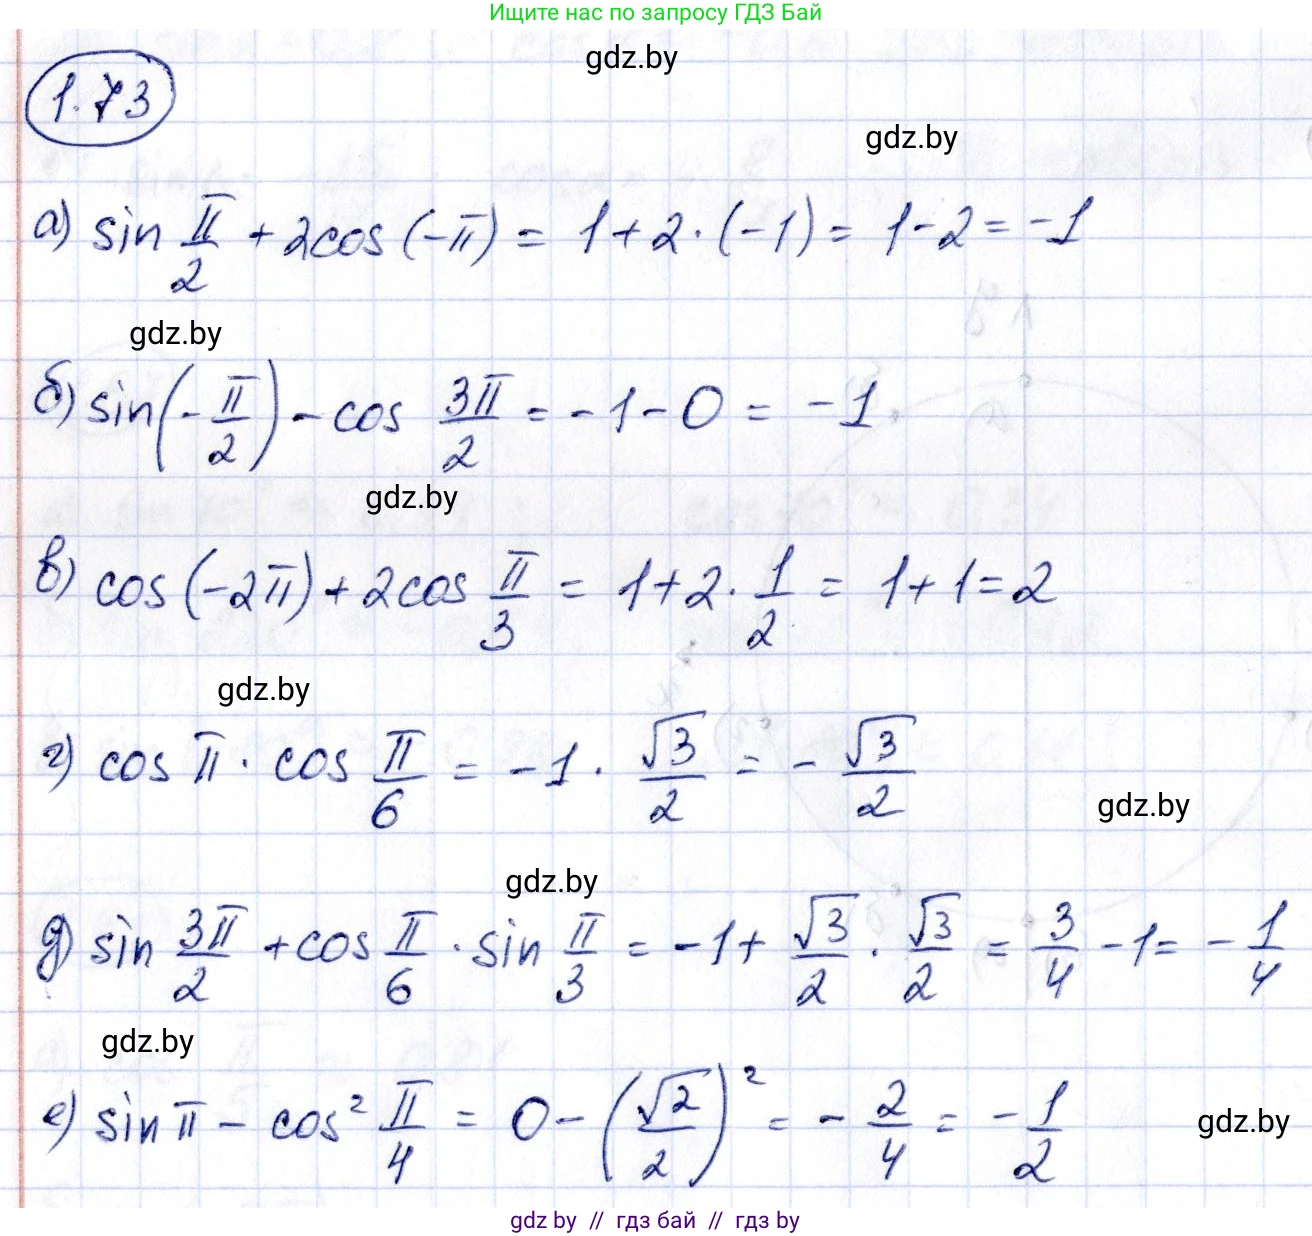 Ищите нас по запросу ГДЗ Бай
gdz.by
1.73
gdz.by
а) sin π/2 + 2cos(-π) = 1 + 2·(-1) = 1 - 2 = -1
gdz.by
б) sin(-π/2) - cos 3π/2 = -1 - 0 = -1
gdz.by
в) cos(-2π) + 2cos π/3 = 1 + 2·1/2 = 1 + 1 = 2
gdz.by
г) cos π · cos π/6 = -1 · √3/2 = -√3/2
gdz.by
gdz.by
д) sin 3π/2 + cos π/6 · sin π/3 = -1 + √3/2 · √3/2 = 3/4 - 1 = -1/4
gdz.by
е) sin π - cos² π/4 = 0 - (√2/2)² = -2/4 = -1/2
gdz.by
gdz by // гдз бай // гдз by